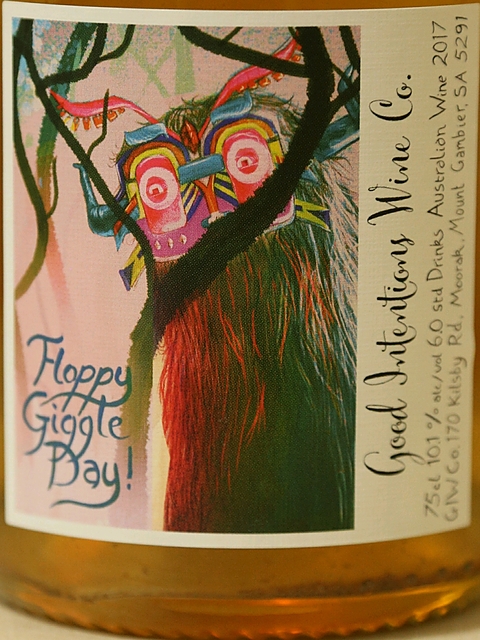 Floppy
Giggle
Day!
Good Intentions Wine Co.
75cl 10.1% alc/vol 6.0 std Drinks Australian Wine 2017
GIW Co. 170 Kilsby Rd, Meorak, Mount Gambier, SA 5291